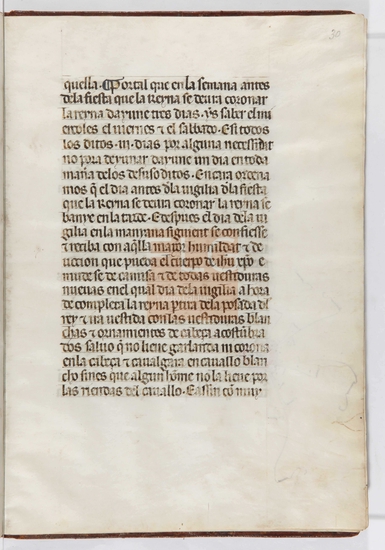 30
quella. Portal que en la semana antes
dela fiesta que la Reyna se deura coronar
la reyna dayune tres dias. ys saber el mi
ercoles el viernes τ el sabbado. E si todos
los ditos .iii. dias por alguna necessidat
no pora deiunar dayune un dia en toda
manera delos desuso ditos. Encara ordena
mos q̄ el dia antes dla uigilia dla fiesta
que la Reyna se deura coronar la reyna se
banye en la tarde. E despues el dia dela ui
gilia en la manyana siguient se confiesse
τ reciba con aq̄lla maior humildat τ de
uocion que pueda el cuerpo de ihu xp̄o e
mude se de camisa τ de todas uestiduras
nueuas en el qual dia dela uigilia a hora
de completa la reyna partira dela posada del
rey τ ira uestida con las uestiduras blan
chas τ ornamientos de cabeça acostūbra
dos saluo q̄ no lieue garlanda ni corona
en la cabeça τ caualgara en cauallo blan
cho sines que algun hōme no la lieue por
las riendas del cauallo. E assin cō muy